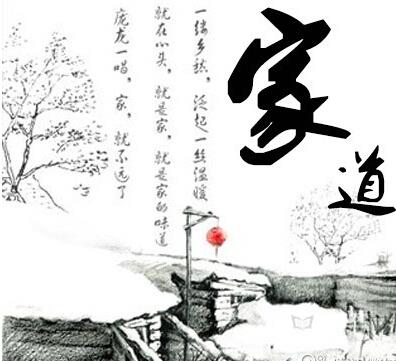 家道
一缕乡愁，泛起一丝温暖
就在心头，就是家，就是家的味道
庞龙一唱，家，就不远了